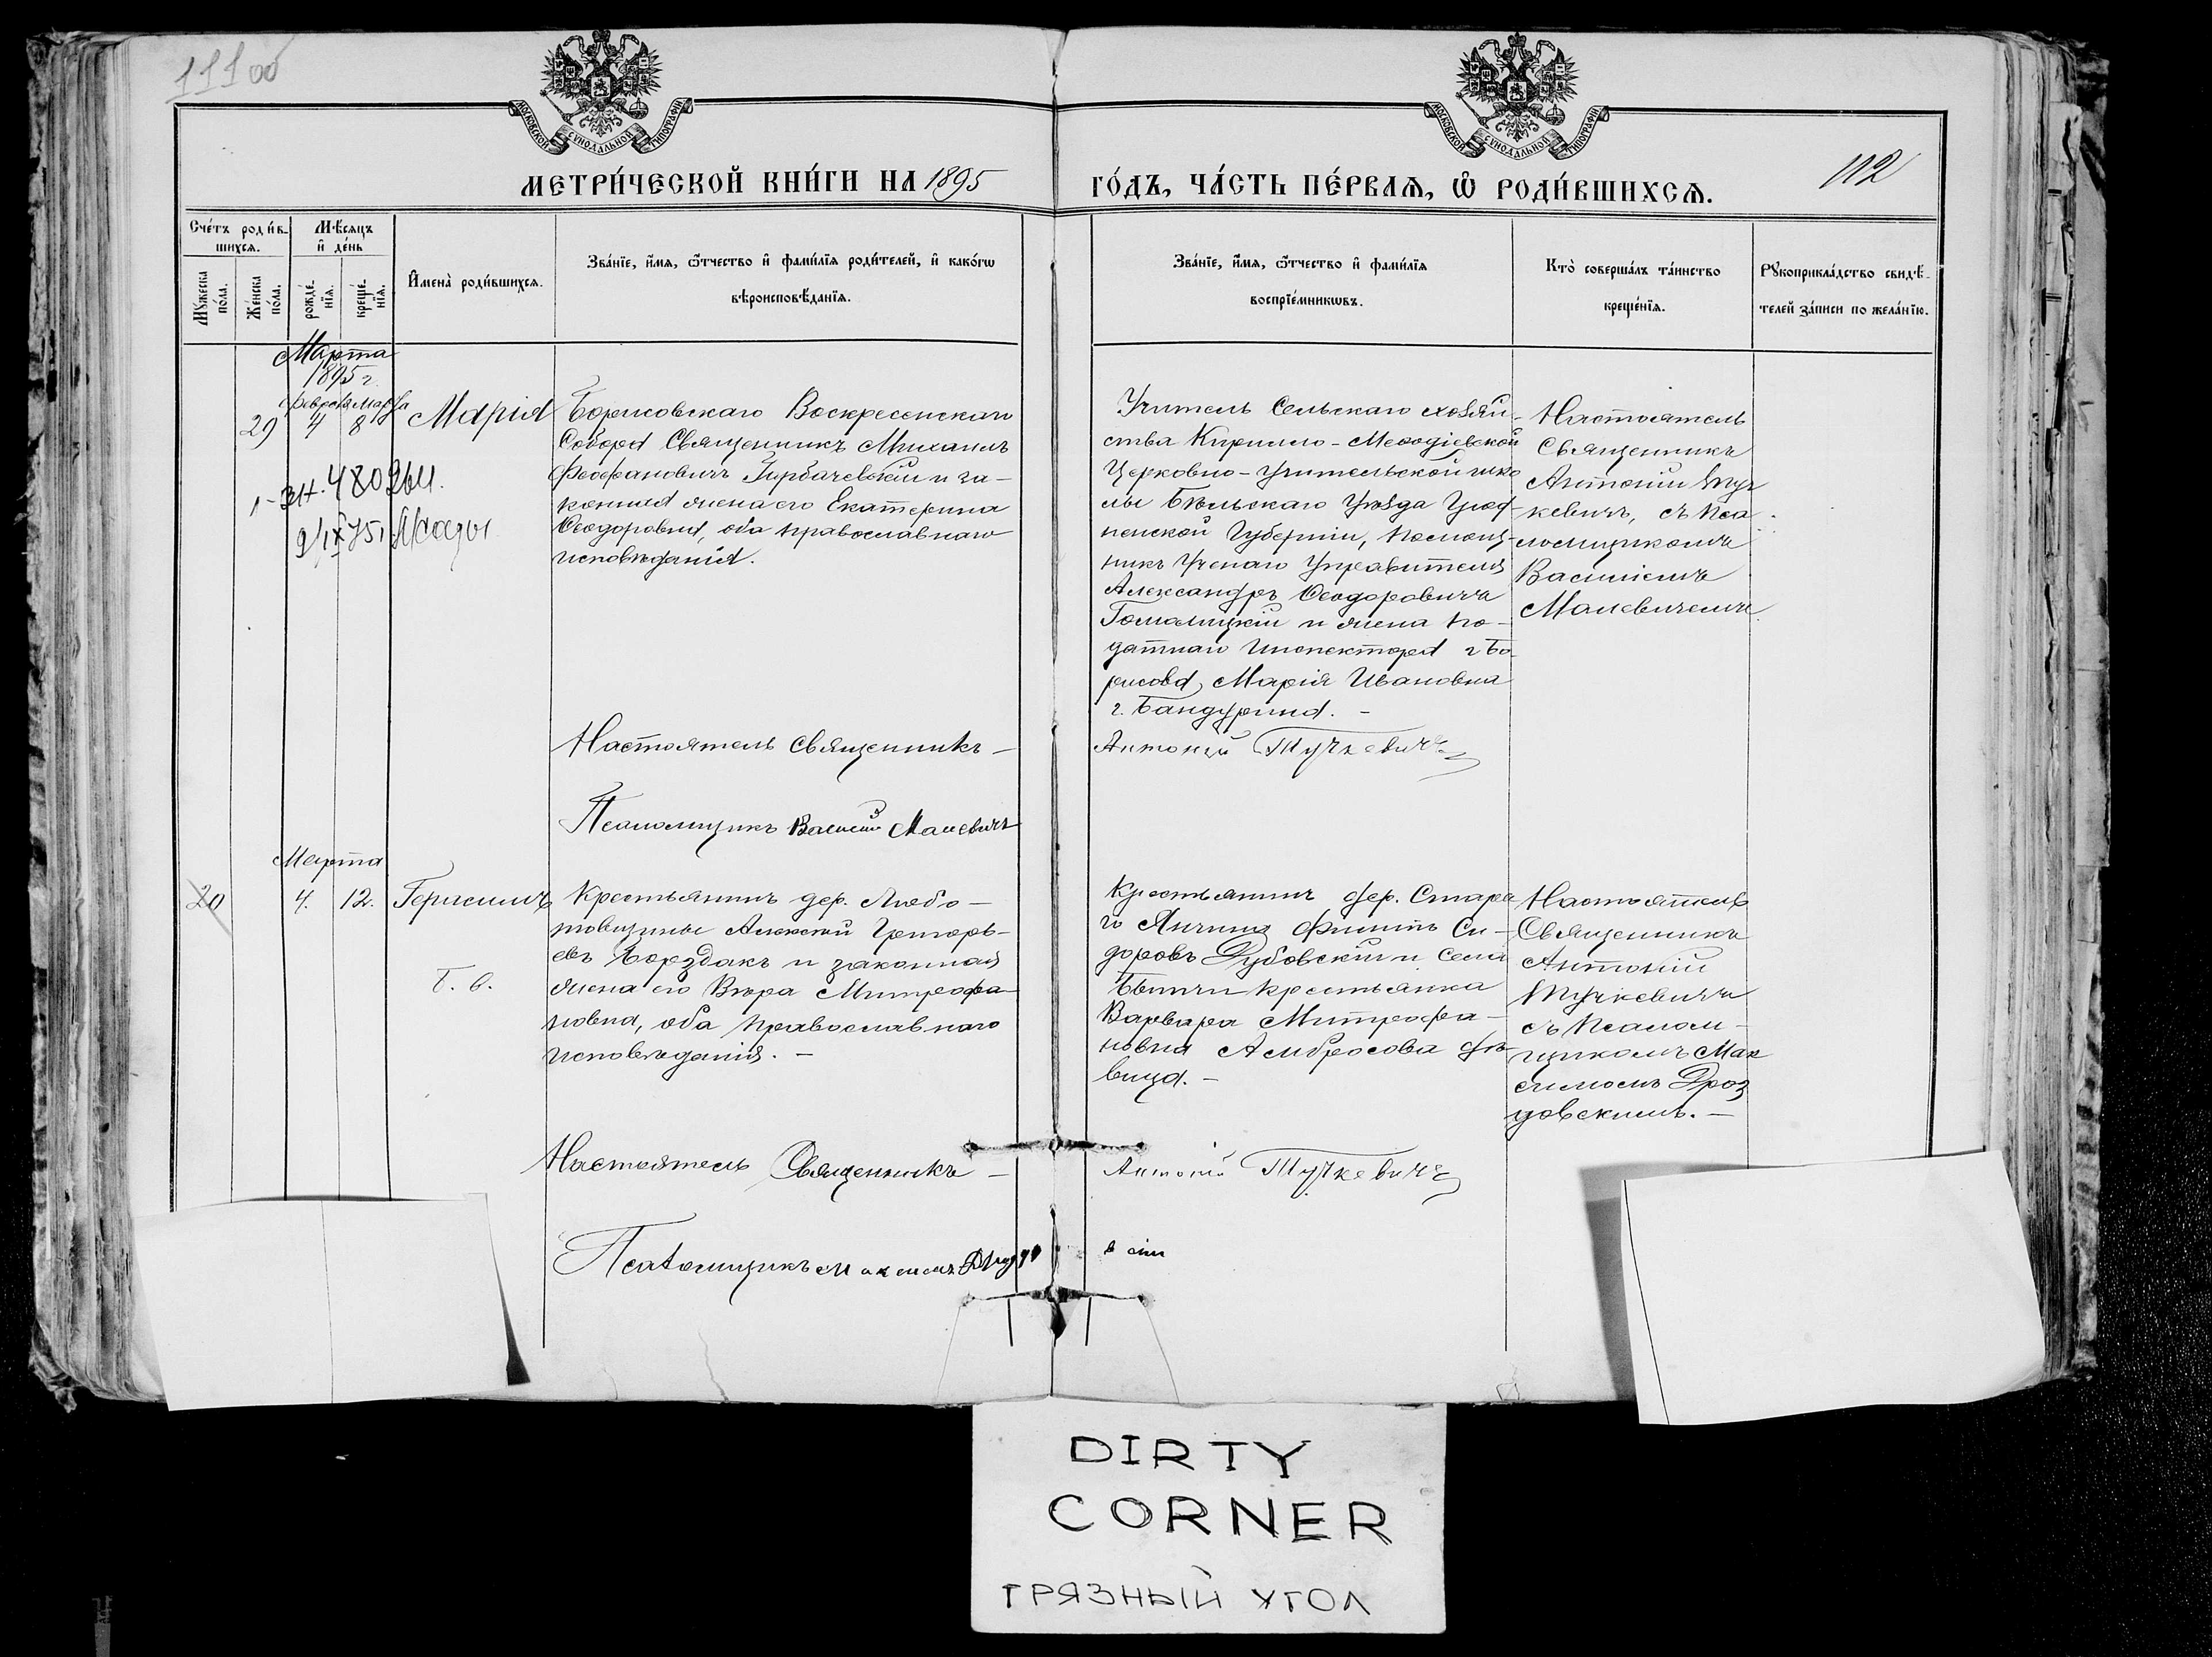 111 об
112
МОСКОВСКОЙ СѴНОДАЛЬНОЙ ТИПОГРАФІИ
МОСКОВСКОЙ СѴНОДАЛЬНОЙ ТИПОГРАФІИ
МЕТРИ́ЧЕСКОЙ КНИ́ГИ НА 1895 ГО́ДЪ, ЧА́СТЬ ПЕ́РВАѦ, Ѡ҆ РОДИ́ВШИХСѦ.
Сче́тъ роди́в-
шихсѧ.
Мꙋ́жеска по́ла.
Же́нска по́ла.
Мѣ́сѧцъ
и҆ де́нь
рожде́-
нїѧ.
креще́-
нїѧ.
И҆мена̀ роди́вшихсѧ.
Зва́нїе, и҆́мѧ, ѻ҆́тчество и҆ фами́лїѧ роди́телей, и҆ како́гѡ
вѣроисповѣ́данїѧ.
Зва́нїе, и҆́мѧ, ѻ҆́тчество и҆ фами́лїѧ
воспрїе́мникѡвъ.
Кто̀ соверша́лъ та́инство
креще́нїѧ.
Рꙋкоприкла́дство свидѣ́-
телей за́писи по жела́нїю.
Марта
1895 г.
Февраля Марта
29 4 8
Марія
Борисовскаго Воскресенскаго
Собора Священникъ Михаилъ
Феофановичъ Горбачевскій и за-
конная жена его Екатерина
Ѳеодоровна, оба православнаго
исповѣданія.
Учитель Сельскаго хозяй-
ства Кирилло-Меѳодіевской
Церковно-Учительской шко
лы Бѣльскаго Уѣзда Грод-
ненской Губерніи, помощ-
никъ Ученаго Управителя
Александръ Ѳеодоровичъ
Гомолицкій и жена по-
датнаго Инспектора г. Бо-
рисова, Марія Ивановна
г. Бандурина. –
Настоятель
Священникъ
Антоній Туч
кевичъ, съ Пса
ломщикомъ
Василіемъ
Малевичемъ
480
Настоятель Священникъ – Антоній Тучкевичъ
Псаломщикъ Василій Малевичъ
Марта
20 4. 12.
Герасимъ
Крестьянинъ дер. Любо-
товщины Алексѣй Григорь-
евъ Борздакъ и законная
жена его Вѣра Митрофа-
новна, оба православнаго
исповѣданія. –
Крестьянинъ дер. Стара
го Янчина Филипъ Си-
доровъ Дубовскій и села
Бытчи крестьянка
Варвара Митрофа-
новна Амбросова дѣ-
вица. –
Настоятель
Священникъ
Антоній
Тучкевичъ
съ Псалом-
щикомъ Мак
симомъ Дроз
довскимъ. –
Настоятель Священникъ – Антоній Тучкевичъ
Псаломщикъ Максимъ
DIRTY
CORNER
ГРЯЗНЫЙ УГОЛ